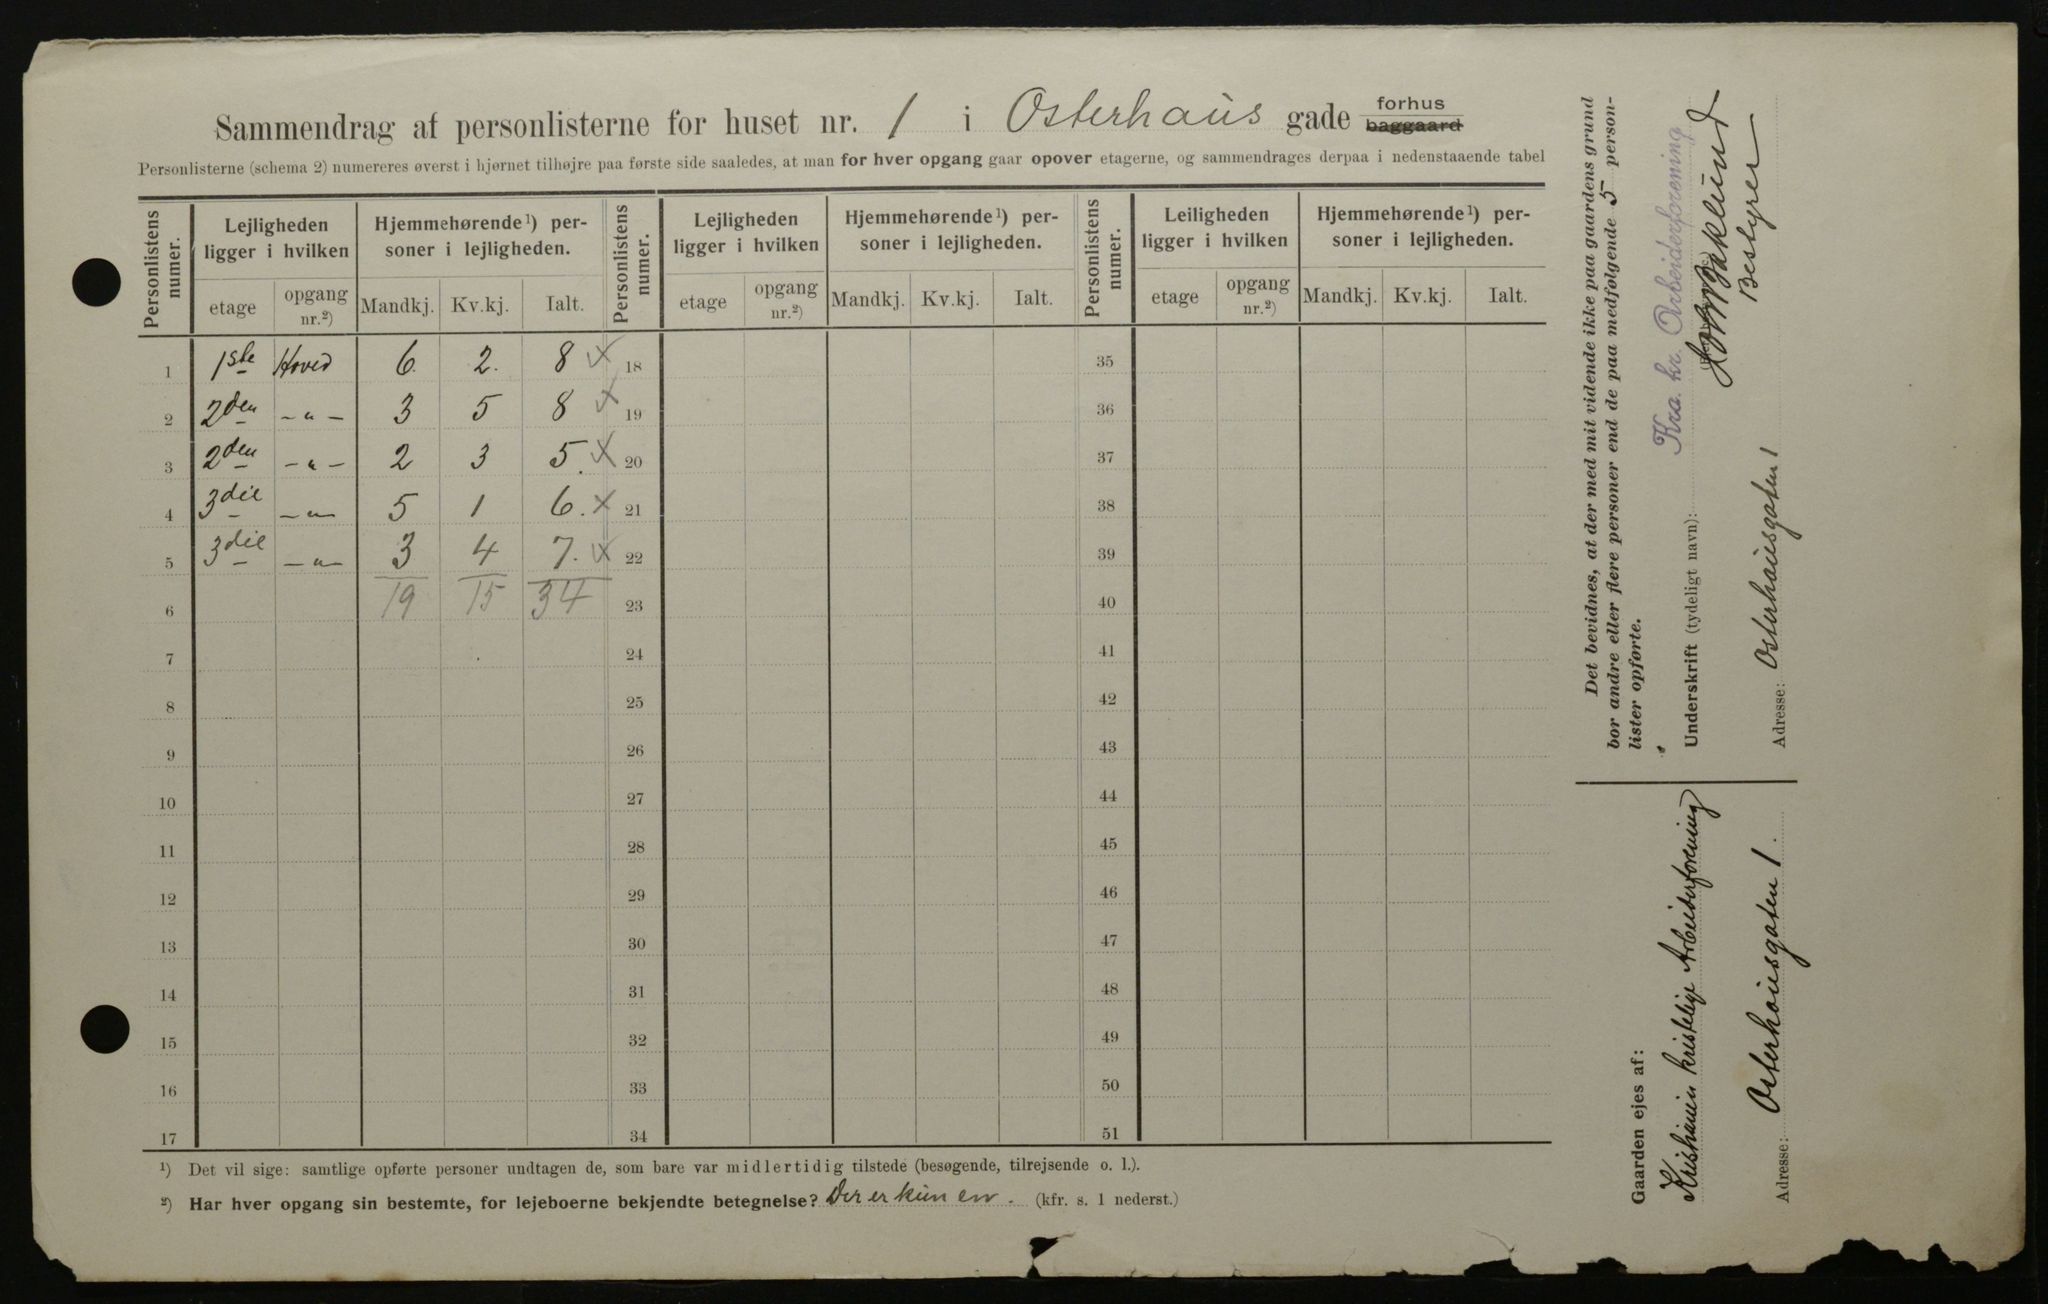 Sammendrag af personlisterne for huset nr. 1 i Osterhaus gade forhus baggaard
Personlisterne (schema 2) numereres øverst i hjørnet tilhøjre paa første side saaledes, at man for hver opgang gaar opover etagerne, og sammendrages derpaa i nedenstaaende tabel
Personlistens numer. Lejligheden ligger i hvilken Hjemmehørende¹) personer i lejligheden. Personlistens numer. Lejligheden ligger i hvilken Hjemmehørende¹) personer i lejligheden. Personlistens numer. Leiligheden ligger i hvilken Hjemmehørende¹) personer i lejligheden.
etage opgang nr.²) Mandkj. Kv.kj. Ialt. etage opgang nr.²) Mandkj. Kv.kj. Ialt. etage opgang nr.²) Mandkj. Kv.kj. Ialt.
1 1ste Hoved 6. 2. 8 18 35
2 2den -"- 3 5 8 19 36
3 2den -"- 2 3 5. 20 37
4 3die -"- 5 1 6. 21 38
5 3die -"- 3 4 7. 22 39
6 19 15 34 23 40
7 24 41
8 25 42
9 26 43
10 27 44
11 28 45
12 29 46
13 30 47
14 31 48
15 32 49
16 33 50
17 34 51
¹) Det vil sige: samtlige opførte personer undtagen de, som bare var midlertidig tilstede (besøgende, tilrejsende o. l.).
²) Har hver opgang sin bestemte, for lejeboerne bekjendte betegnelse? Der er kun en. (kfr. s. 1 nederst.)
Det bevidnes, at der med mit vidende ikke paa gaardens grund
bor andre eller flere personer end de paa medfølgende 5 person-
lister opførte.
Kra. kr. Arbeiderforening
Underskrift (tydeligt navn): Baklund
Bestyrer
Adresse: Osterhausgaten 1
Gaarden ejes af:
Kristiania kristelige Arbeiderforening
Adresse: Osterhausgaten 1.